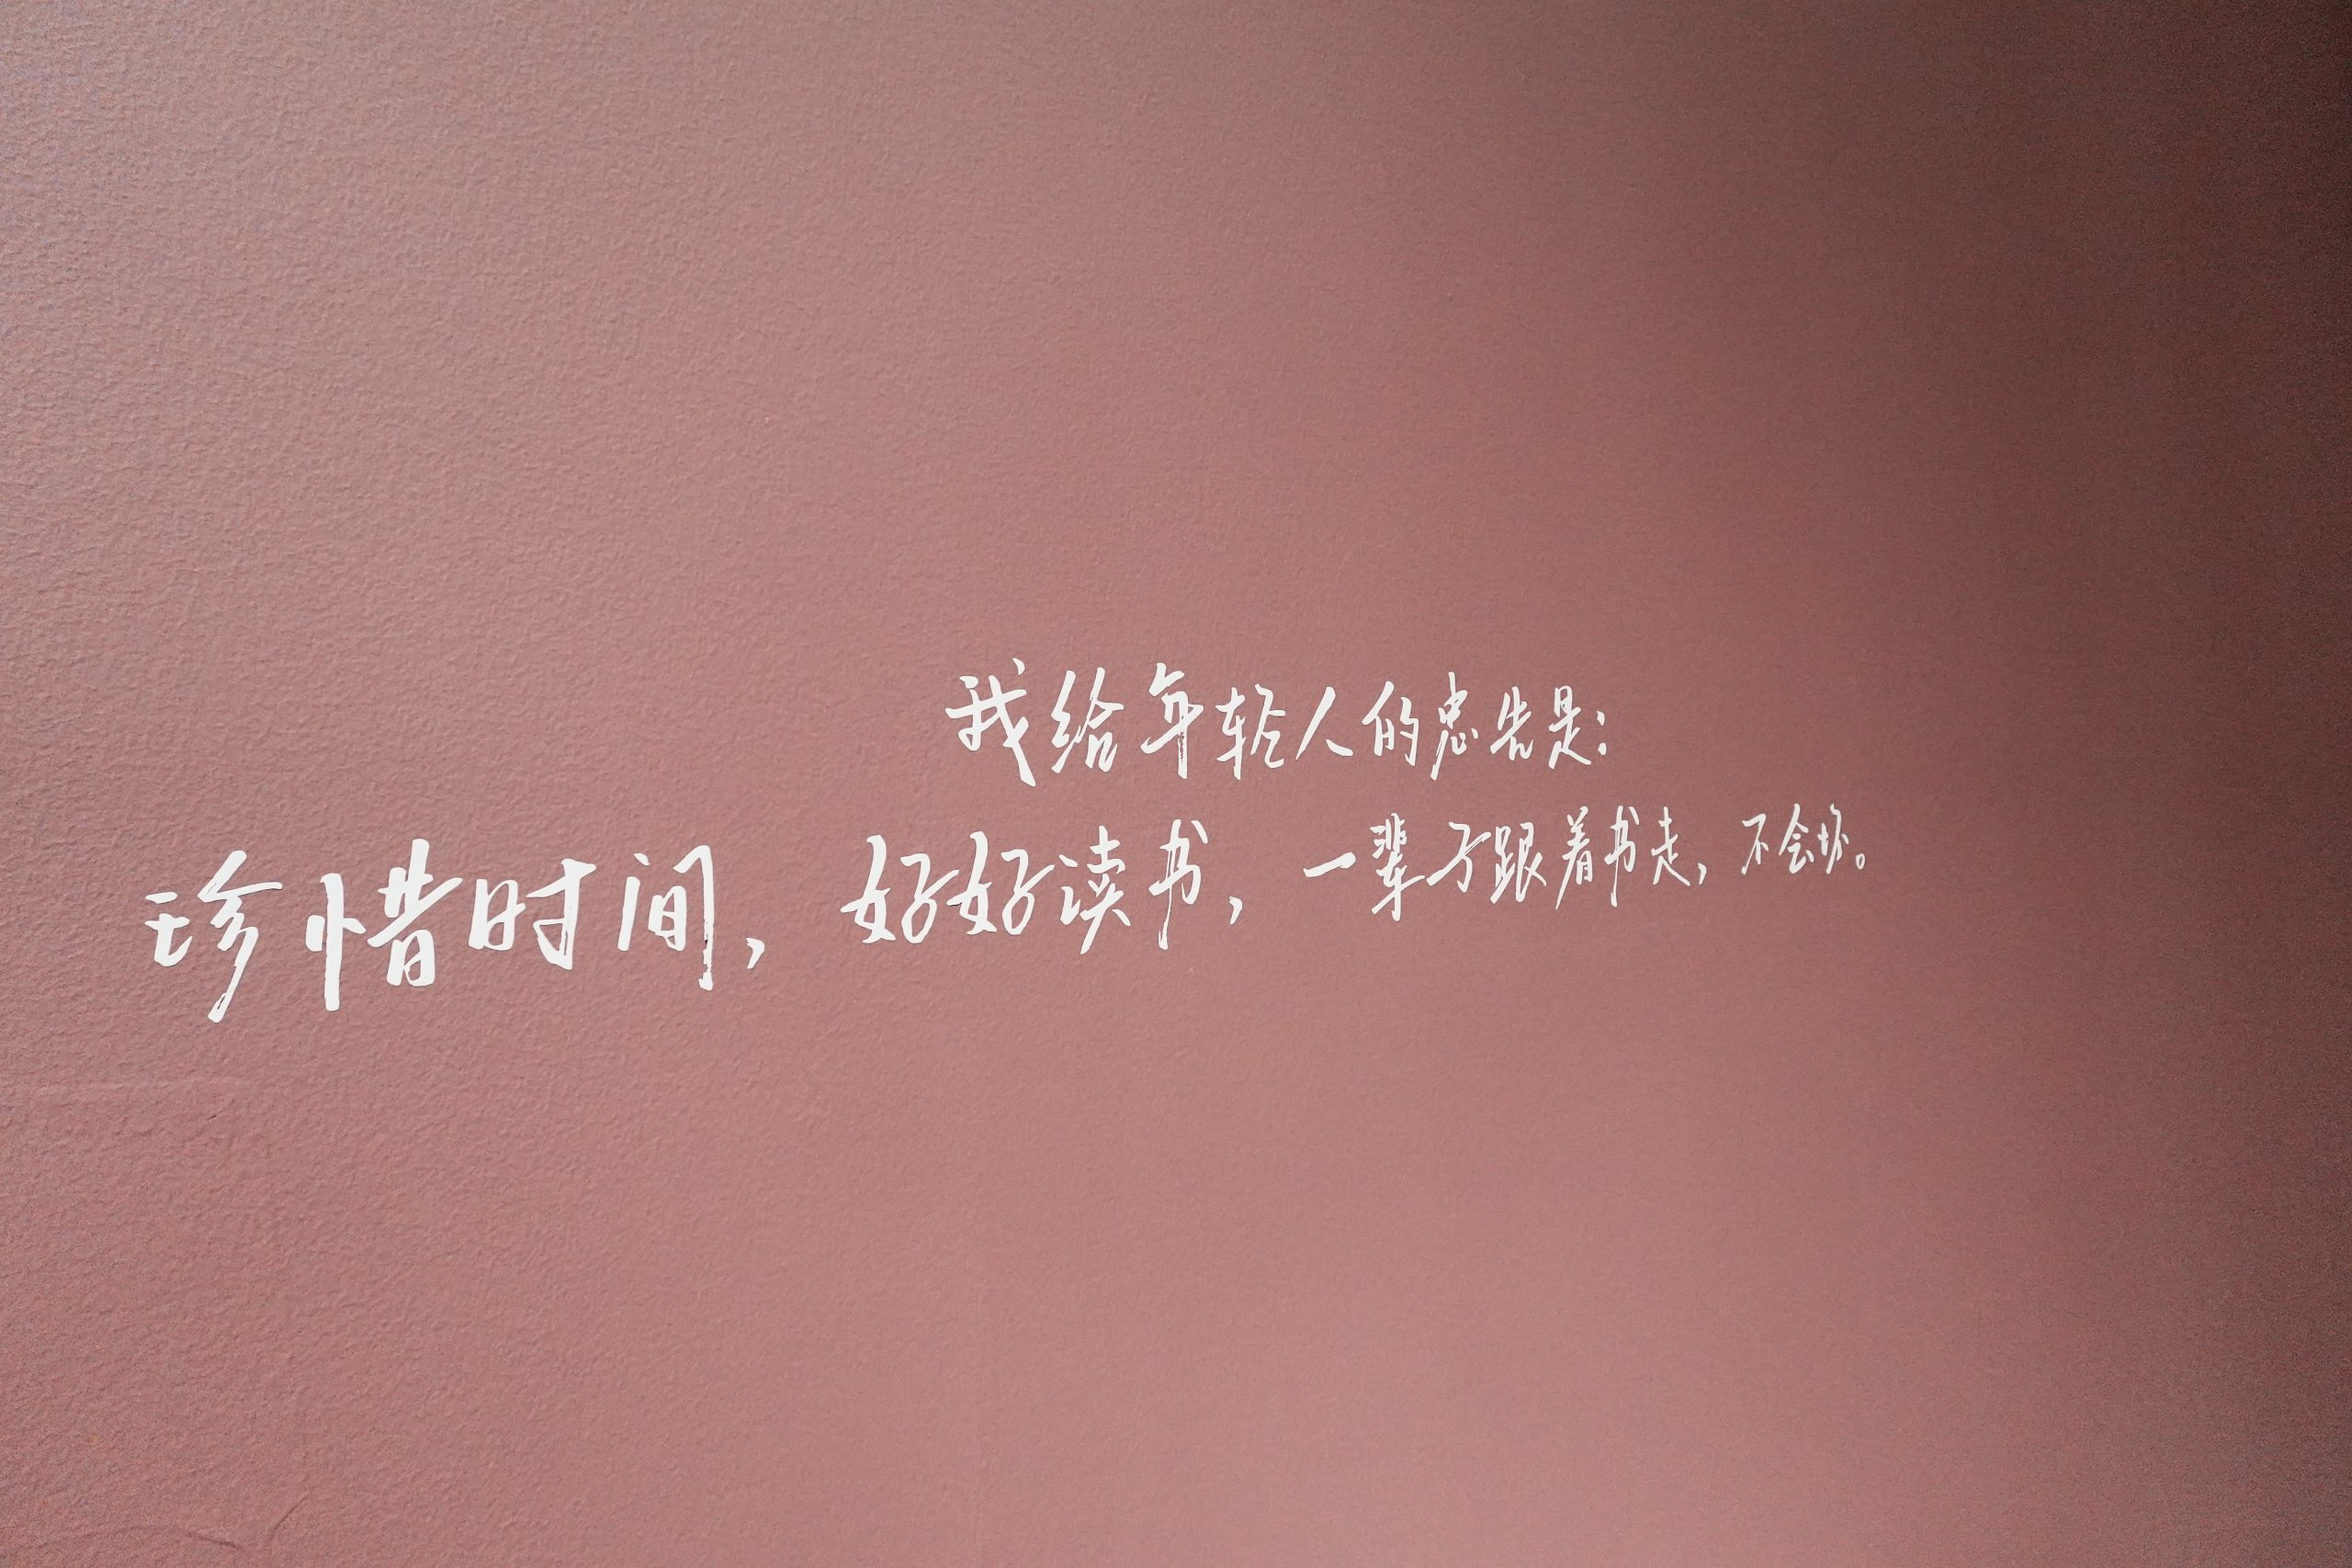 我给年轻人的忠告是：
珍惜时间，好好读书，一辈子跟着书走，不会坏。